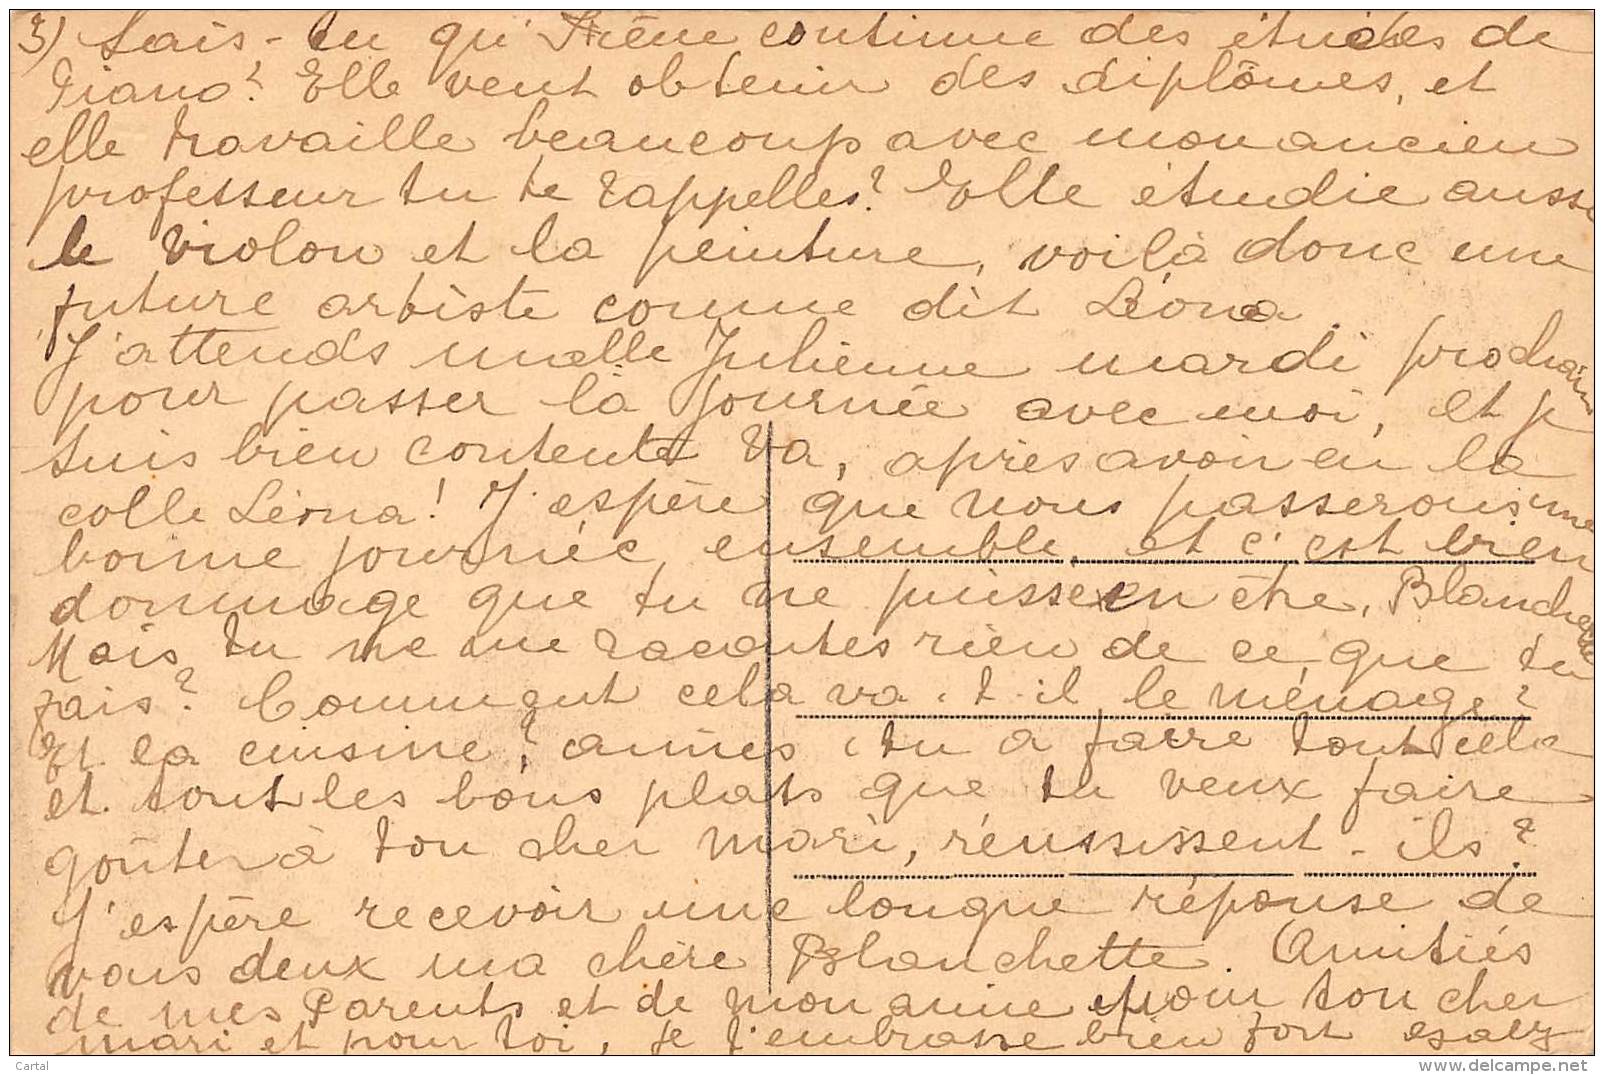 3) Sais-tu qu'Irène continue des études de
Piano? Elle veut obtenir des diplômes, et
elle travaille beaucoup avec mon ancien
professeur tu te rappelles? Elle étudie aussi
le violon et la peinture, voilà donc une
future artiste comme dit Léona.
J'attends melle Julienne mardi prochain
pour passer la journée avec moi, et j
suis bien contente va, après avoir eu la
colle Léona! J'espère que nous passerons une
bonne journée ensemble, et c'est bien
dommage que tu ne puisses en être, Blanchette
Mais tu ne me racontes rien de ce que tu
fais? Comment cela va-t-il le ménage?
Et la cuisine? aimes-tu à faire tout cela
et tout les bons plats que tu veux faire
goûter à ton cher mari, réussissent-ils?
J'espère recevoir une longue réponse de
vous deux ma chère Blanchette. Amitiés
de mes Parents et de mon amie pour ton cher
mari et pour toi, je t'embrasse bien fort
Cartal
www.delcampe.net